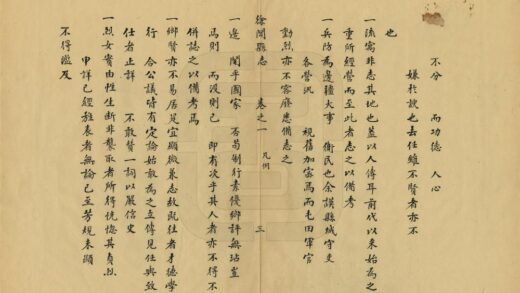 不分 而功德 人心
嫌於諛也去任雖不賢者亦不
也
一流寓非志其地也蓋以人傳耳前代以來始為之
重所經營而至此者志之以備考
一兵防為邊疆大事 衛民也余謨縣城守吏
各營汛 視舊加密焉而屯田軍官
勳烈亦不容廢悉備志之
徐聞縣志 卷之一 凡例 三
一選 關乎國家 否苟制行素優鄉評無玷登
焉則 而沒則已 即有次乎其人者亦不得不
併誌之以備考焉
一鄉賢亦不易居足宜顯微兼志故既往者才德學
行 合公議時有定論始敢為之立傳見任與致
仕者止詳 不敢贊一詞以嚴信史
一烈女實由性生斷非襲取者所得恍惚其貞烈
申詳已經旌表者無論已至芳規未顯
不得濫及